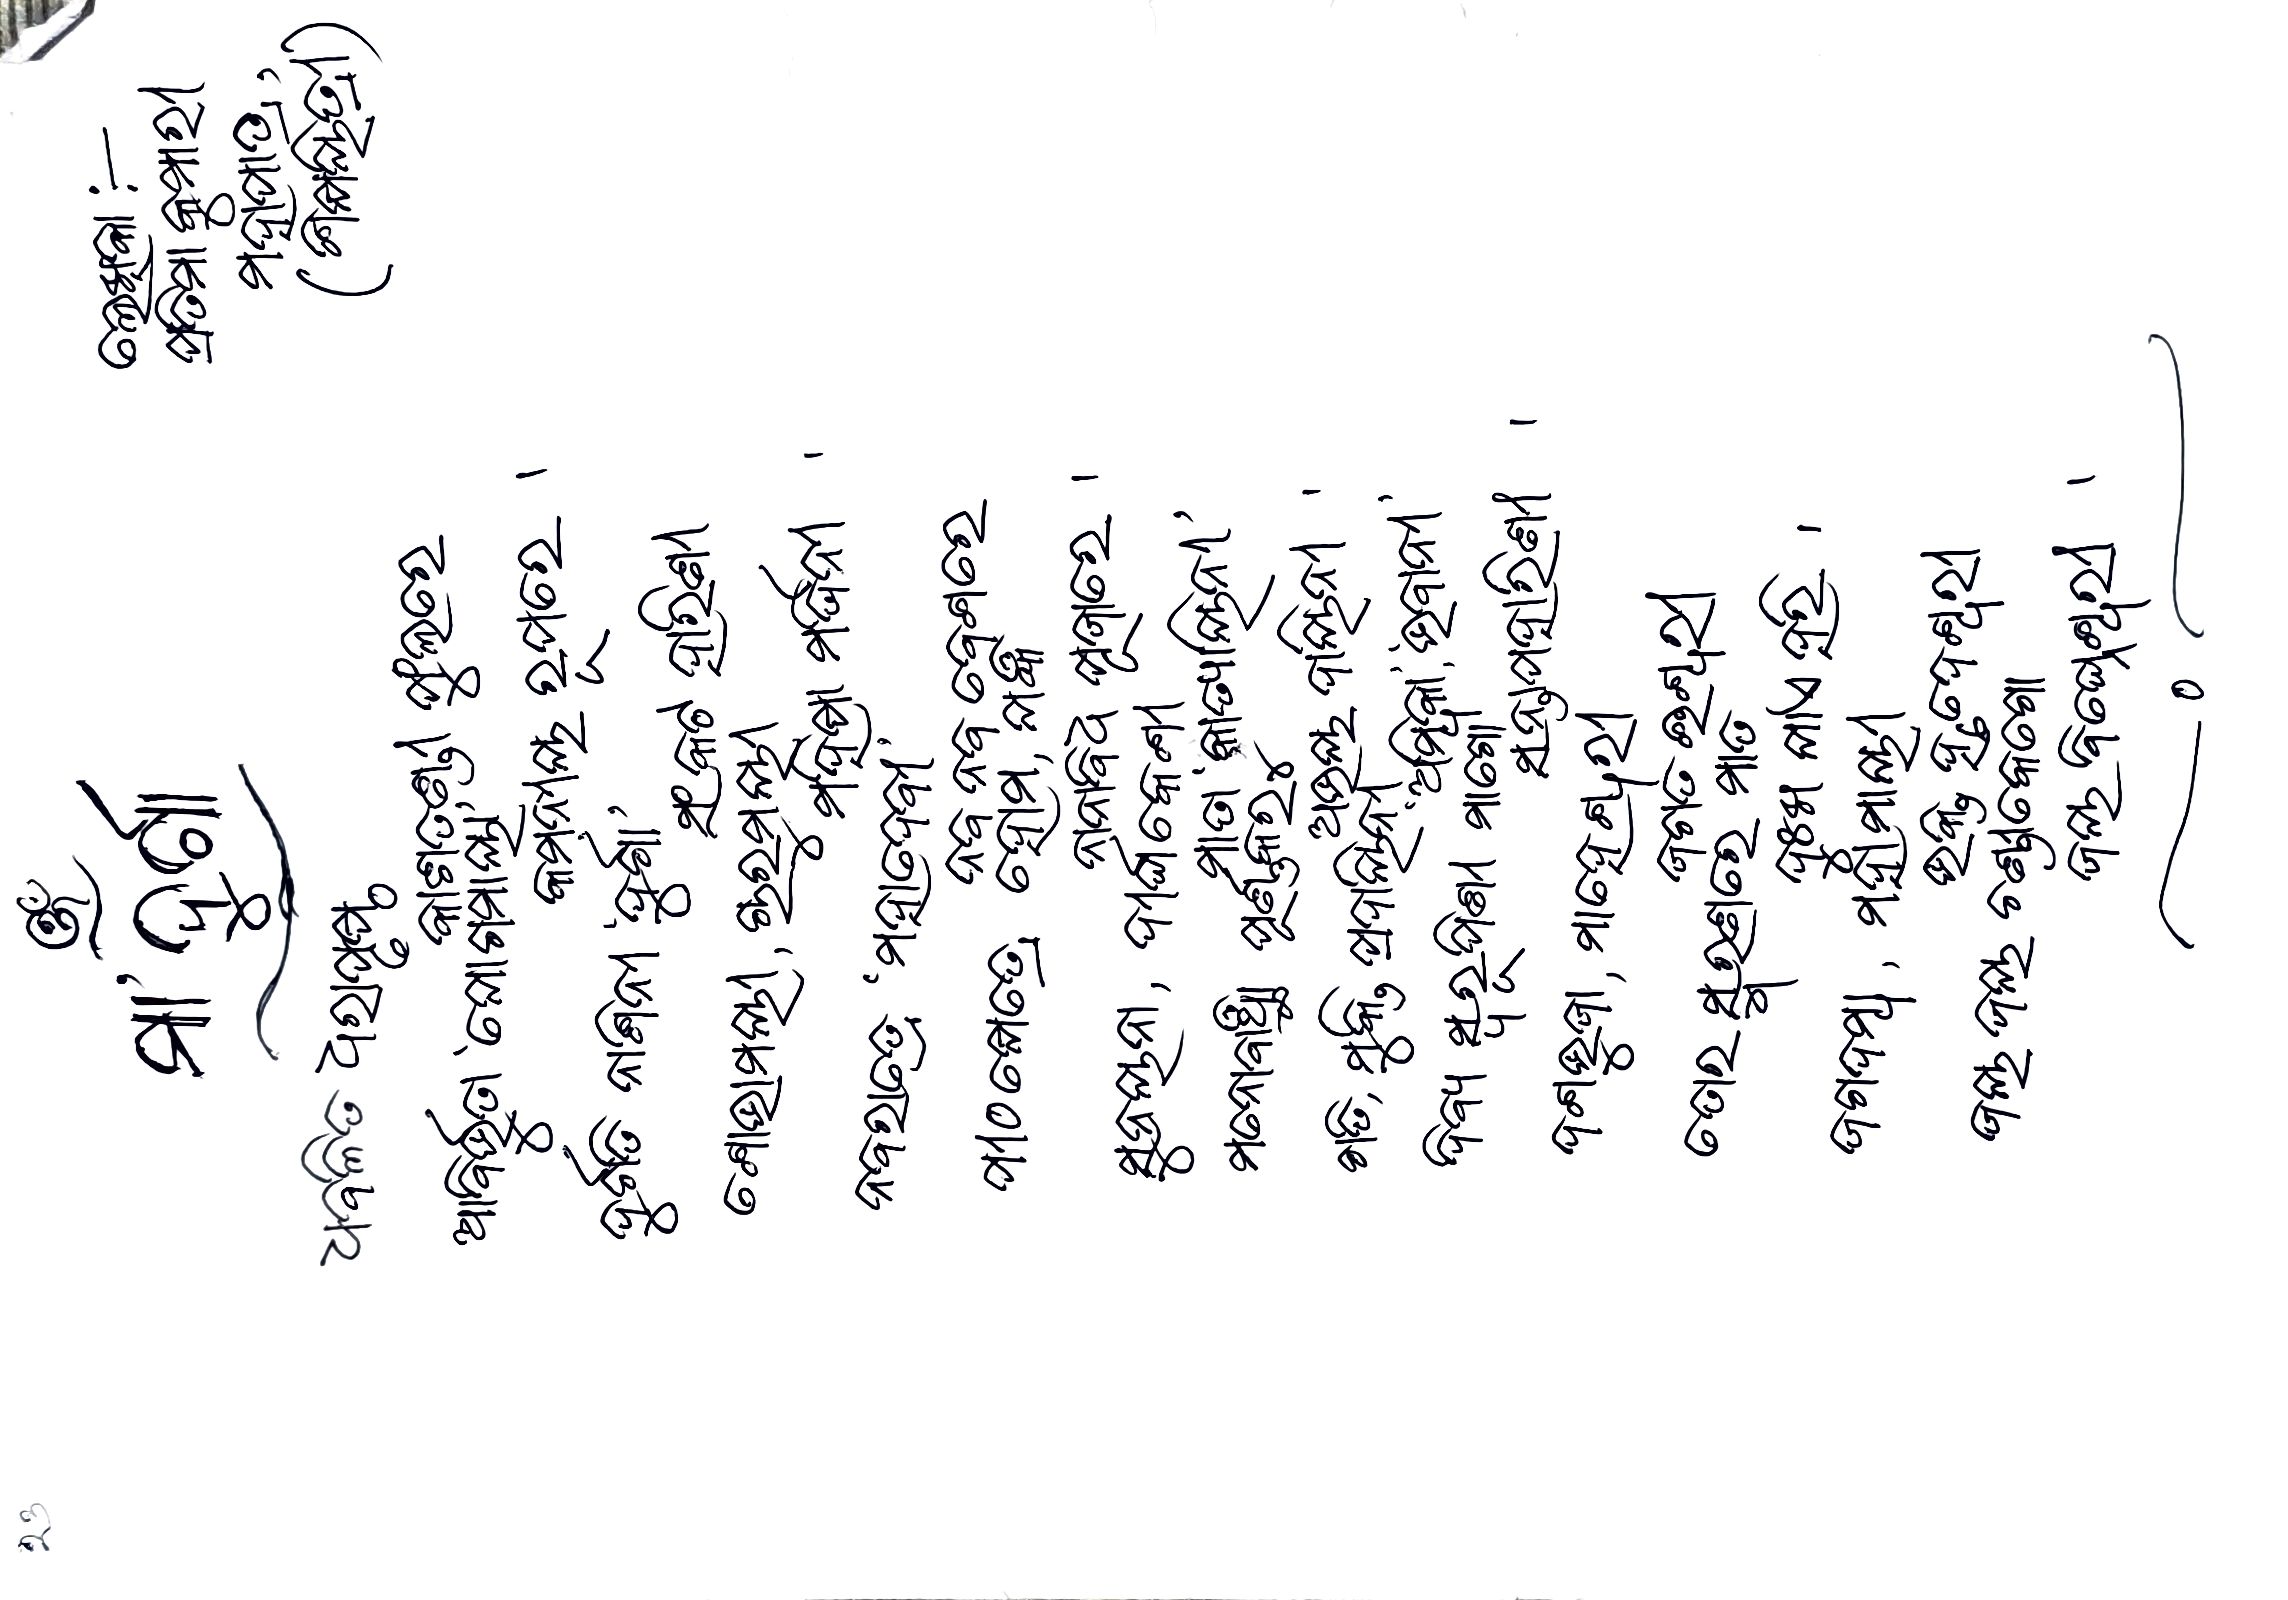 23
ଓଁ
ମା' ଦୁର୍ଗା
ଲେଖିକା :—
ପ୍ରତିମା କୁମାରୀ
ମହାପାତ୍ର,
(ଶିକ୍ଷୟିତ୍ରୀ)
ଧବଳିତ ଧରାପୃଷ୍ଠ
କାଶତଣ୍ଡୀ ଫୁଲରେ
ଆବିର୍ଭୁତା 'ଯୋଗମାୟା'
କମନୀୟ ରୂପରେ ।
ଦୁର୍ଗତି ନାଶିନୀ 'ଦୁର୍ଗା'
ସଂକଟ ହାରିଣୀ
ଶୋଭାମୟୀ, ଚାରୁମୟୀ
ମହିଷା ମର୍ଦ୍ଦିନୀ ।
ନବରାତ୍ରେ 'ମହାଦେବୀ'
ନବ ନବ ବେଶରେ
ପୀଠକ୍ଷେତ୍ରେ ହୋମ, ଯଜ୍ଞ
ନାନାବିଧ ପୂଜାରେ ।
ସୁନୟନା, ଦୀର୍ଘକେଶୀ
ମାତା 'କାତ୍ୟାୟିନୀ'
ମନୋବାଞ୍ଛା ପୂର୍ଣ୍ଣକର୪
ଅଭୟ ଦାୟିନୀ ।
ଗତି, ମୁକ୍ତି ପ୍ରଦାୟିନୀ
'ଅମ୍ବିକା', 'ଭବାନୀ'
ଦିବ୍ୟ ସ୍ୱରୂପିଣୀ ମାଗୋ
ସନ୍ତାପହାରିଣୀ ।
ଦଶଭୁଜା, ମାହେଶ୍ୱରୀ
ଜଗତ ଈଶ୍ୱରୀ
ତୋର ସ୍ମୁରଣରେ ମାତ
ଦୁଃଖ ଯାଏ ହରି ।
ଜଗଦମ୍ବା, ମହାମାୟୀ
ଭକ୍ତି ହୃଦେଶ୍ୱରୀ
ଜୟ ଜୟ ଚଣ୍ଡୀକେଗୋ
ଜୟ ବିଘ୍ନେଶ୍ୱରୀ ।
୦